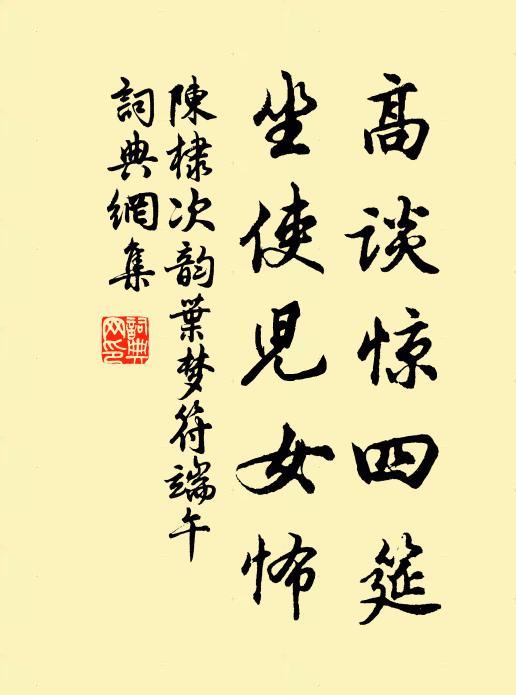 高谈惊四筵
坐使児女怖
陳棣次韵葉梦符端午
詞典網集
詞典
网印